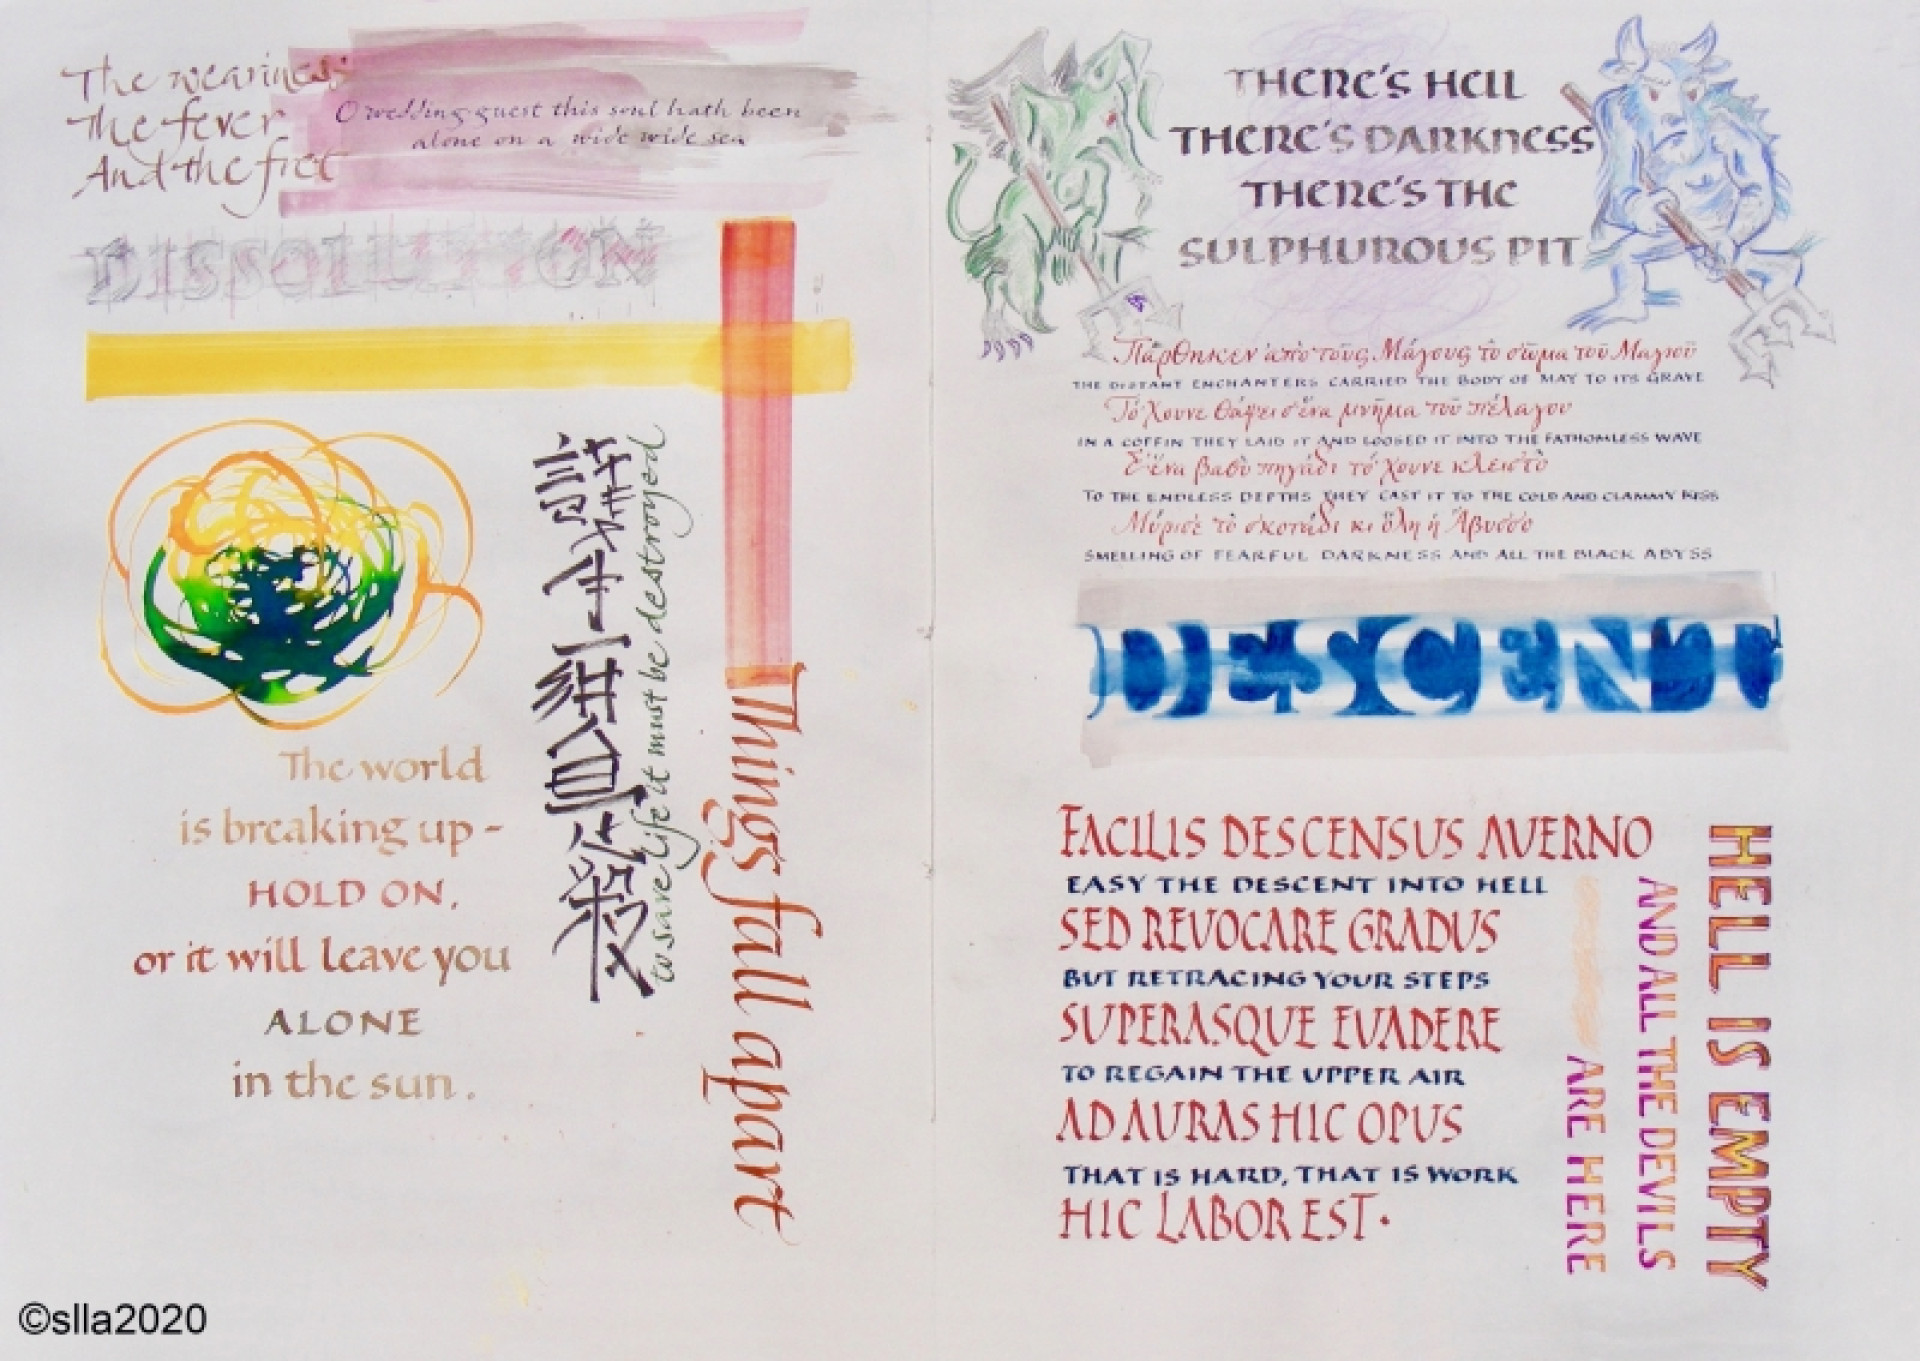 The weariness
The fever
And the fret
O wedding guest this soul hath been
alone on a wide wide sea
DISSOLUTION
The world
is breaking up -
HOLD ON,
or it will leave you
ALONE
in the sun.
to save life it must be destroyed
Things fall apart
THERE'S HELL
THERE'S DARKNESS
THERE'S THE
SULPHUROUS PIT
Πάρθηκεν ἀπὸ τοῦς Μάγους τὸ σῶμα τοῦ Μαγιοῦ
THE DISTANT ENCHANTERS CARRIED THE BODY OF MAY TO ITS GRAVE
Τό χουνε θάψει σ' ἕνα μνῆμα τοῦ πέλαγου
IN A COFFIN THEY LAID IT AND LOOSED IT INTO THE FATHOMLESS WAVE
Σ' ἕνα βαθὺ πηγάδι τό χουνε κλειστὸ
TO THE ENDLESS DEPTHS THEY CAST IT TO THE COLD AND CLAMMY KISS
Μύρισε τὸ σκοτάδι κι ὅλη ἡ Ἄβυσσο
SMELLING OF FEARFUL DARKNESS AND ALL THE BLACK ABYSS
DESCENT
FACILIS DESCENSUS AVERNO
EASY THE DESCENT INTO HELL
SED REVOCARE GRADUS
BUT RETRACING YOUR STEPS
SUPERASQUE EVADERE
TO REGAIN THE UPPER AIR
AD AURAS HIC OPUS
THAT IS HARD, THAT IS WORK
HIC LABOR EST.
HELL IS EMPTY
AND ALL THE DEVILS
ARE HERE
©slla2020